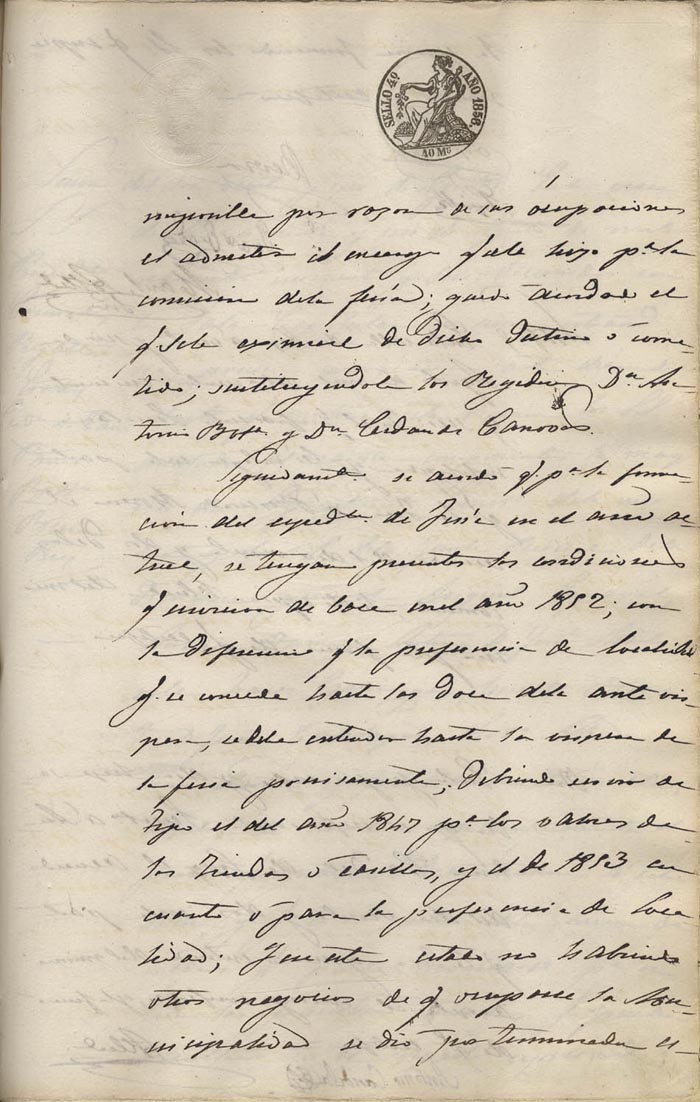 SELLO 4º AÑO 1856.
40 Ms
imposible por razon de sus ocupaciones
el admitir el encargo q. se le hizo pª la
comision de la feria; quedó acordado el
q. se le exonere de dicho destino ó come-
tido; sustituyendole los Regidores Dn An-
tonio y Dn Canovas.
Seguidamte se acordó q. pª la forma-
cion del expedte de Feria en el año ac-
tual, se tengan presentes las condiciones
q. sirvieron de base en el año 1852; con
la diferencia q. la preferencia de localidad
q. se concede hasta las doce de la ante vis-
pera, se debe entender hasta la vispera de
la feria precisamente; debiendo servir de
tipo el del año 1847 pª los valores de
las tiendas ó casillas, y el de 1853 en
cuanto ó para la preferencia de loca-
lidad; Y en este estado no habiendo
otros negocios de q. ocuparse la Mu-
nicipalidad se dió por terminada es-